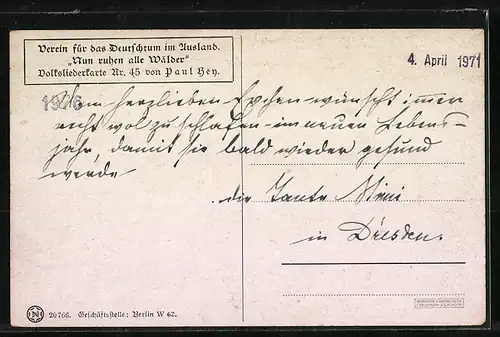 Verein für das Deutschtum im Ausland.
„Nun ruhen alle Wälder"
Volksliederkarte Nr. 45 von Paul Hey.
4. April 1971
herzlieben Evchen wünscht immer
recht wol zu schlafen im neuen Lebens-
jahr, damit sie bald wieder gesund
werde
die Tante Mimi
in Dresden.
20766. Geschäftsstelle: Berlin W 62.